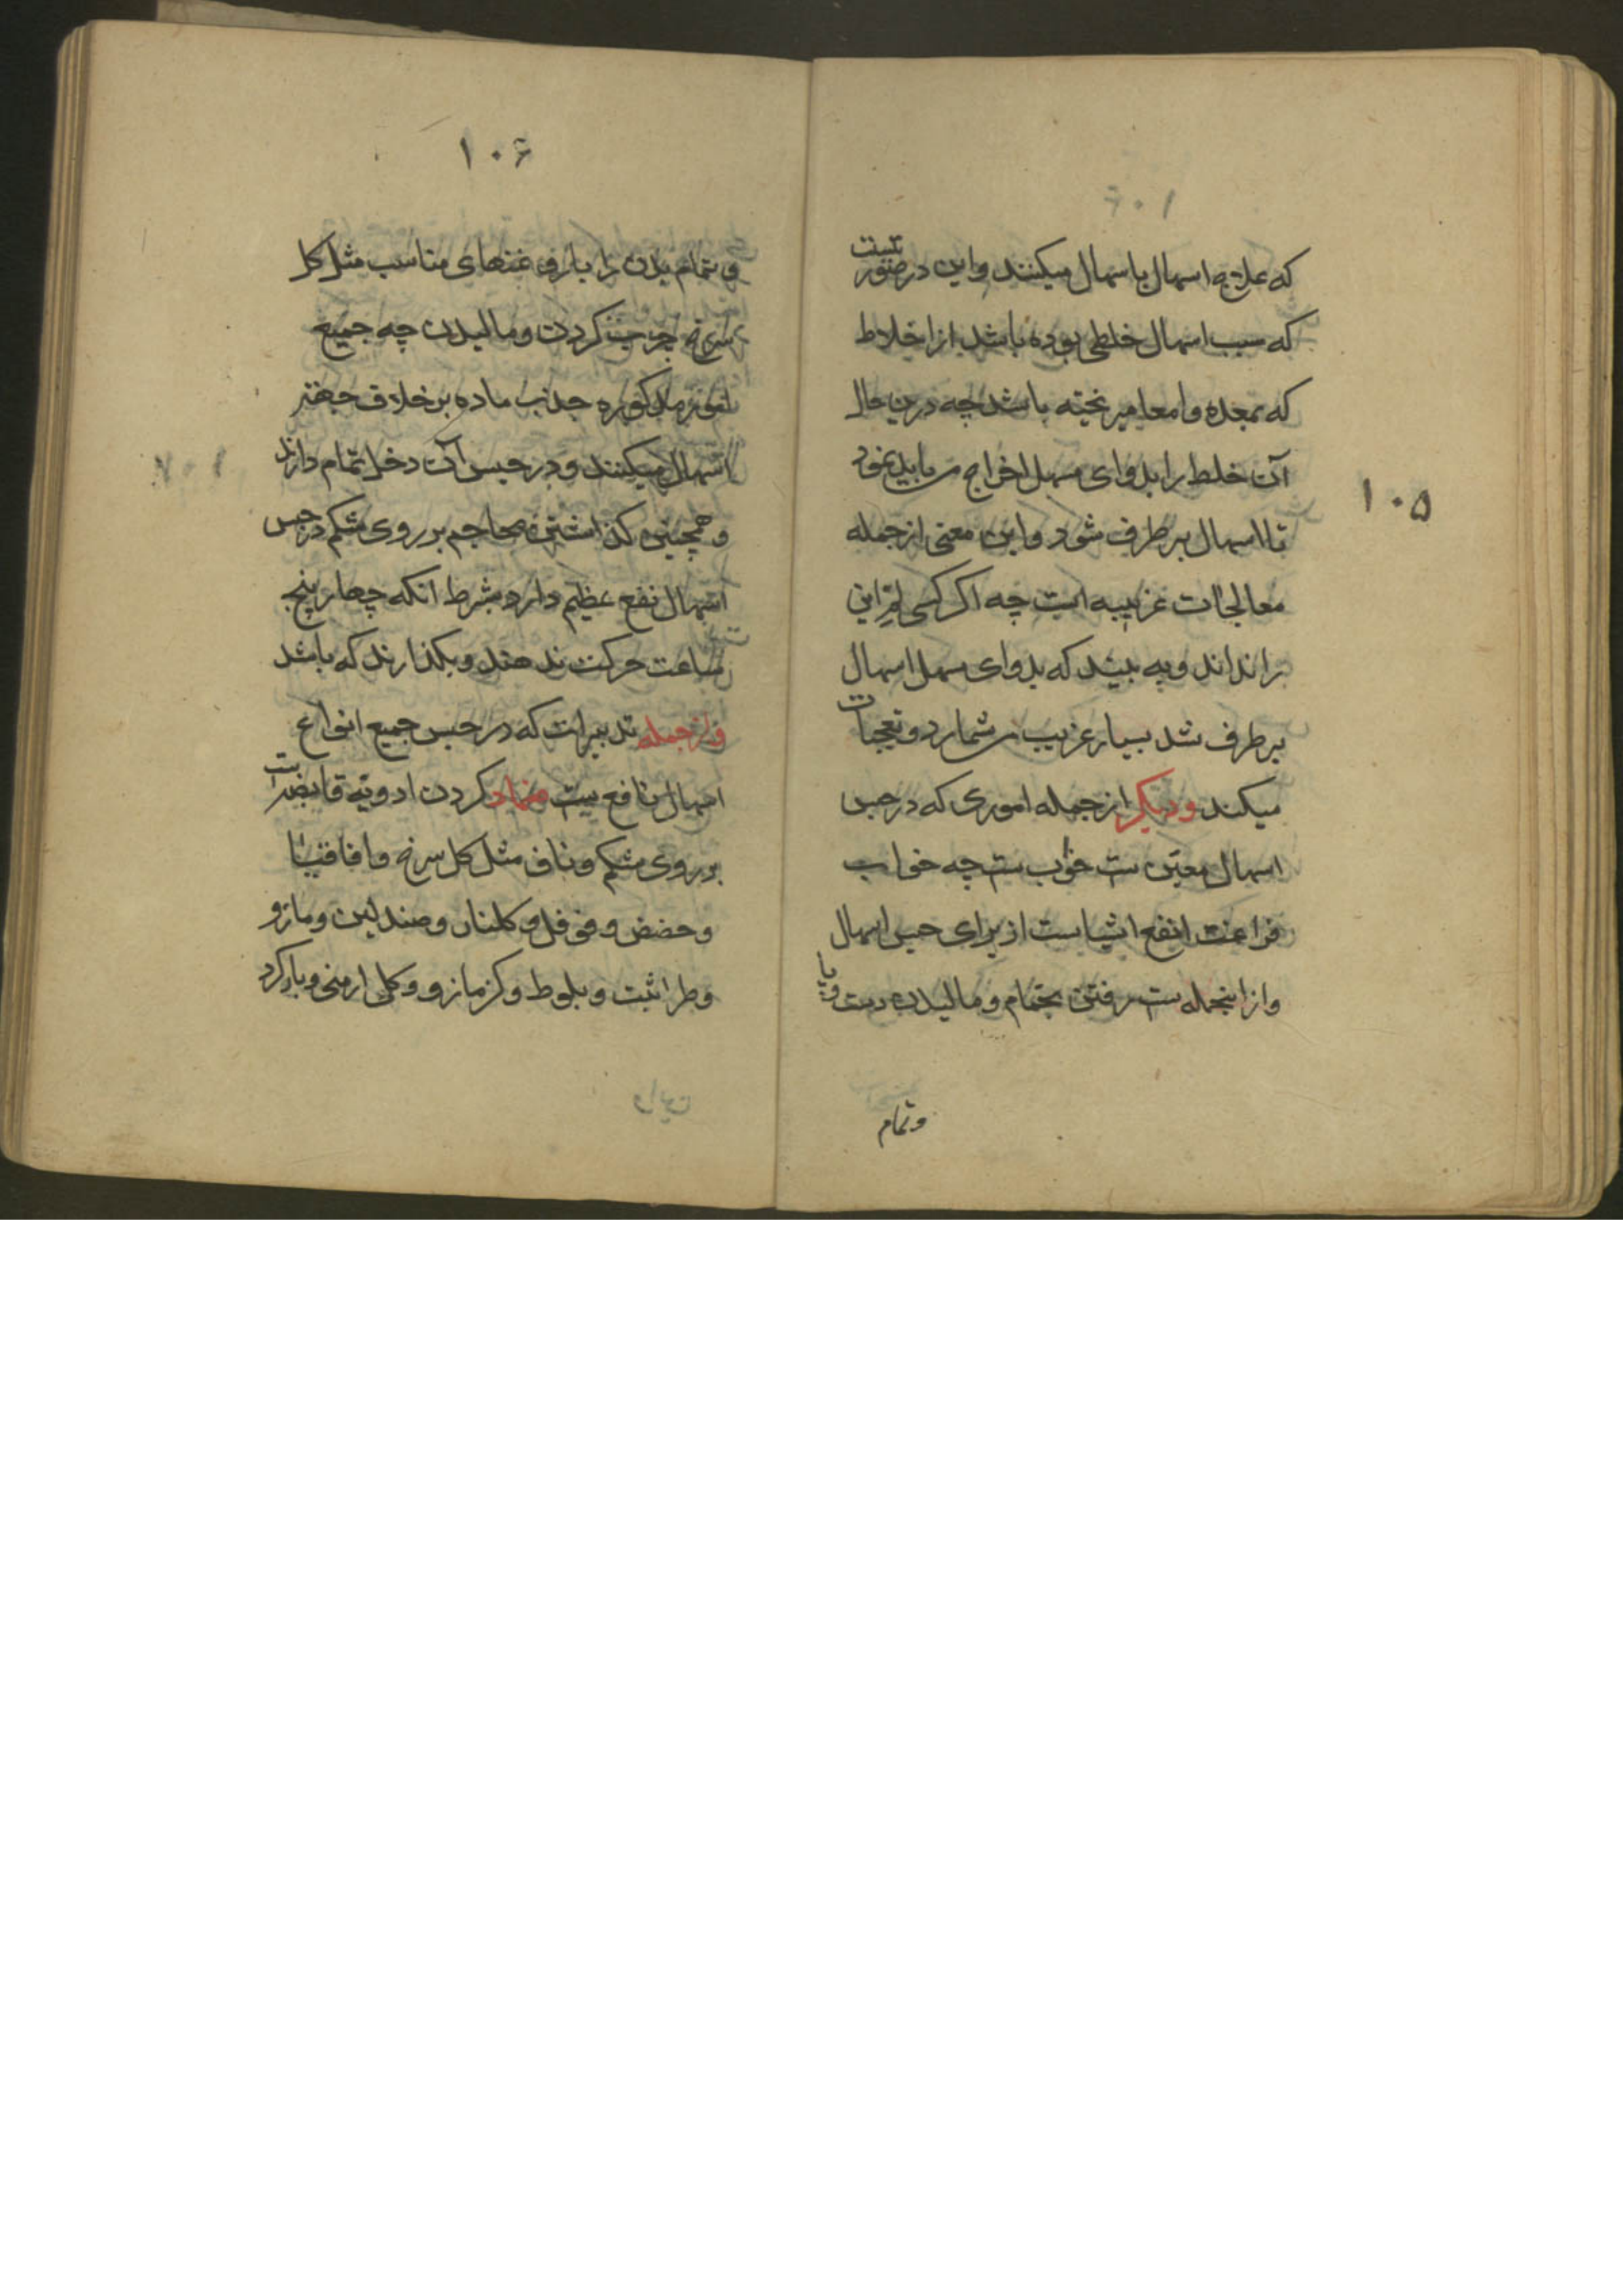 ۱۰۵
که علاج اسهال باسهال میکنند و این در صورتیست
که سبب اسهال خلطی بوده باشد از اخلاط
که بمعده و امعا میریخته باشد چه درین حال
آن خلط را بدوای مسهل اخراج می باید نمود
تا اسهال برطرف شود و این معنی از جمله
معالجات غریبه است چه اکر کسی لمّ این
را نداند و به بیند که بدوای مسهل اسهال
برطرف شد بسیار غریب می شمارد و تعجبات
میکند و دیکر از جمله اموری که در حبس
اسهال معین ست خواب ست چه خواب
فراغت انفع اشیاست از برای حبس اسهال
و از اینجمله ست رفتن بحمّام و مالیدن دست و پا
و تمام
۱۰۶
و تمام بدن را باروغنهای مناسب مثل کل
سرخ چرب کردن و مالیدن چه جمیع
امور مذکوره جذب ماده بر خلاف جهة
اسهال میکنند و در حبس آن دخل تمام دارند
و همچنین کذاشتن محاجم بر روی شکم در حبس
اسهال نفع عظیم دارد بشرط انکه چهار پنج
ساعت حرکت ندهند و بکذارند که باشد
و از جمله تدبیرات که در حبس جمیع انواع
اسهال نافع ست ضماد کردن ادویه قابضه است
بر روی شکم و ناف مثل کل سرخ و اقاقیا
و حضض و فوفل و کلنار و صندلین و مازو
و طراثیث و بلوط و کزمازو و کل ارمنی و باد کرد